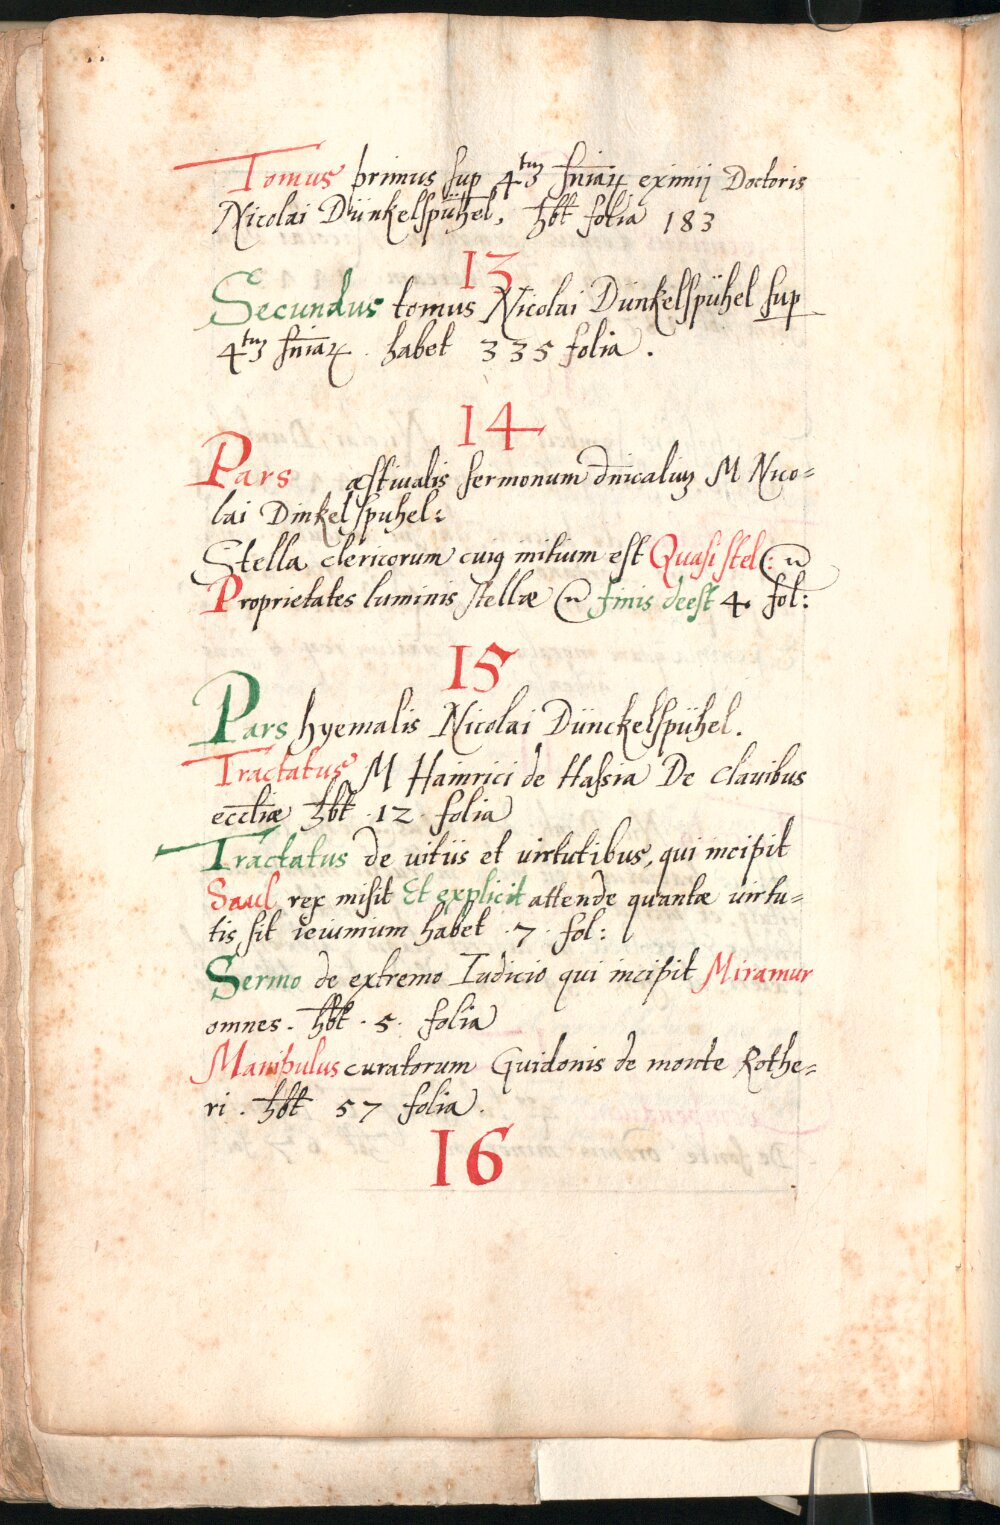 Tomus primus sup 4tuʒ sn̄iaꝝ eximij Doctoris
Nicolai Dünkelspühel, hbt folia 183
13
Secundus tomus Nicolai Dünkelspühel sup
4tuʒ sn̄iaꝝ. habet 335 folia.
14
Pars æstiualis sermonum dn̄icaliuʒ M Nico=
lai Dinkelspuhel:
Stella clericorum cuiꝰ initium est Quasi stel:
Proprietates luminis stellæ finis deest 4. fol:
15
Pars hyemalis Nicolai Dünckelspühel.
Tractatus M Hainrici de Hassia De clauibus
eccl̄iæ hbt .12. folia
Tractatus de uitiis et uirtutibus, qui incipit
Saul rex misit Et explicit attende quantæ uirtu=
tis sit ieiunium habet .7. fol:
Sermo de extremo Iudicio qui incipit Miramur
omnes. hbt .5. folia
Manipulus curatorum Guidonis de monte Rothe=
ri. hbt 57 folia.
16